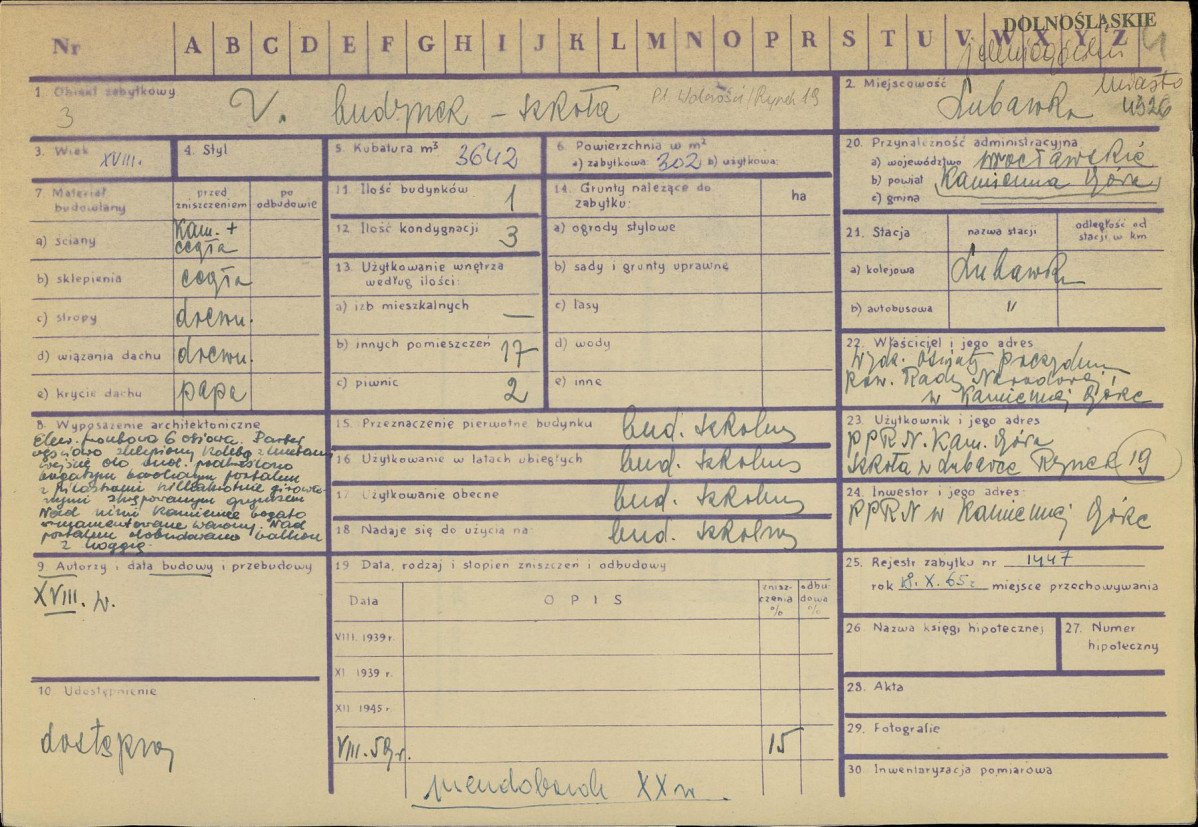 DOLNOŚLĄSKIE
Nr A B C D E F G H I J K L M N O P R S T U V W X Y Z
1. Obiekt zabytkowy
3 V. budynek - szkoła Pl. Wolności/Rynek 19
2. Miejscowość
Lubawka miasto
4326
3. Wiek XVIII.
4. Styl
5. Kubatura m³ 3642
6. Powierzchnia w m²
a) zabytkowa: 302 b) użytkowa:
20. Przynależność administracyjna
a) województwo wrocławskie
b) powiat Kamienna Góra
c) gmina
7. Materiał budowlany
przed zniszczeniem
po odbudowie
a) ściany kam. + cegła
b) sklepienia cegła
c) stropy drewn.
d) wiązania dachu drewn.
e) krycie dachu papa
11. Ilość budynków 1
12. Ilość kondygnacji 3
13. Użytkowanie wnętrza
według ilości:
a) izb mieszkalnych —
b) innych pomieszczeń 17
c) piwnic 2
14. Grunty należące do
zabytku: ha
a) ogrody stylowe
b) sady i grunty uprawne
c) lasy
d) wody
e) inne
21. Stacja
nazwa stacji
odległość od
stacji w km
a) kolejowa Lubawka
b) autobusowa "
22. Właściciel i jego adres
Wydz. Oświaty Prezydium
Pow. Rady Narodowej
w Kamiennej Górze
8. Wyposażenie architektoniczne
Elew. frontowa 6 osiowa. Parter
częściowo sklepiony kolebą z lunetami
wejście do bud. podkreślono
bogatym barokowym portalem
z pilastrami kilkakrotnie girowa-
nymi zwęzowanym gzymsem
Nad nimi kamienne bogato
ornamentowane wazony. Nad
portalem dobudowano balkon
z loggią.
15. Przeznaczenie pierwotne budynku bud. szkolny
16. Użytkowanie w latach ubiegłych bud. szkolny
17. Użytkowanie obecne bud. szkolny
18. Nadaje się do użycia na: bud. szkolny
23. Użytkownik i jego adres
PPRN. Kam. Góra
Szkoła w Lubawce Rynek 19
24. Inwestor i jego adres:
PPRN w Kamiennej Górze
9. Autorzy i data budowy i przebudowy
XVIII. w.
10. Udostępnienie
dostępny
19. Data, rodzaj i stopień zniszczeń i odbudowy
Data
OPIS
zniszczenia %
odbudowa %
VIII. 1939 r.
XI. 1939 r.
XII. 1945 r.
VIII. 59 r. 15
pseudobarok XX w.
25. Rejestr zabytku nr 1447
rok 18.X.65 r. miejsce przechowywania
26. Nazwa księgi hipotecznej
27. Numer
hipoteczny
28. Akta
29. Fotografie
30. Inwentaryzacja pomiarowa